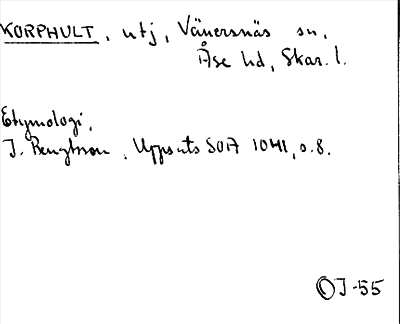 KORPHULT, utj, Vänersnäs sn,
Åse hd, Skar. l.
Etymologi,
J. Bengtsson, Uppsats SOA 1041, s. 8.
OJ-55